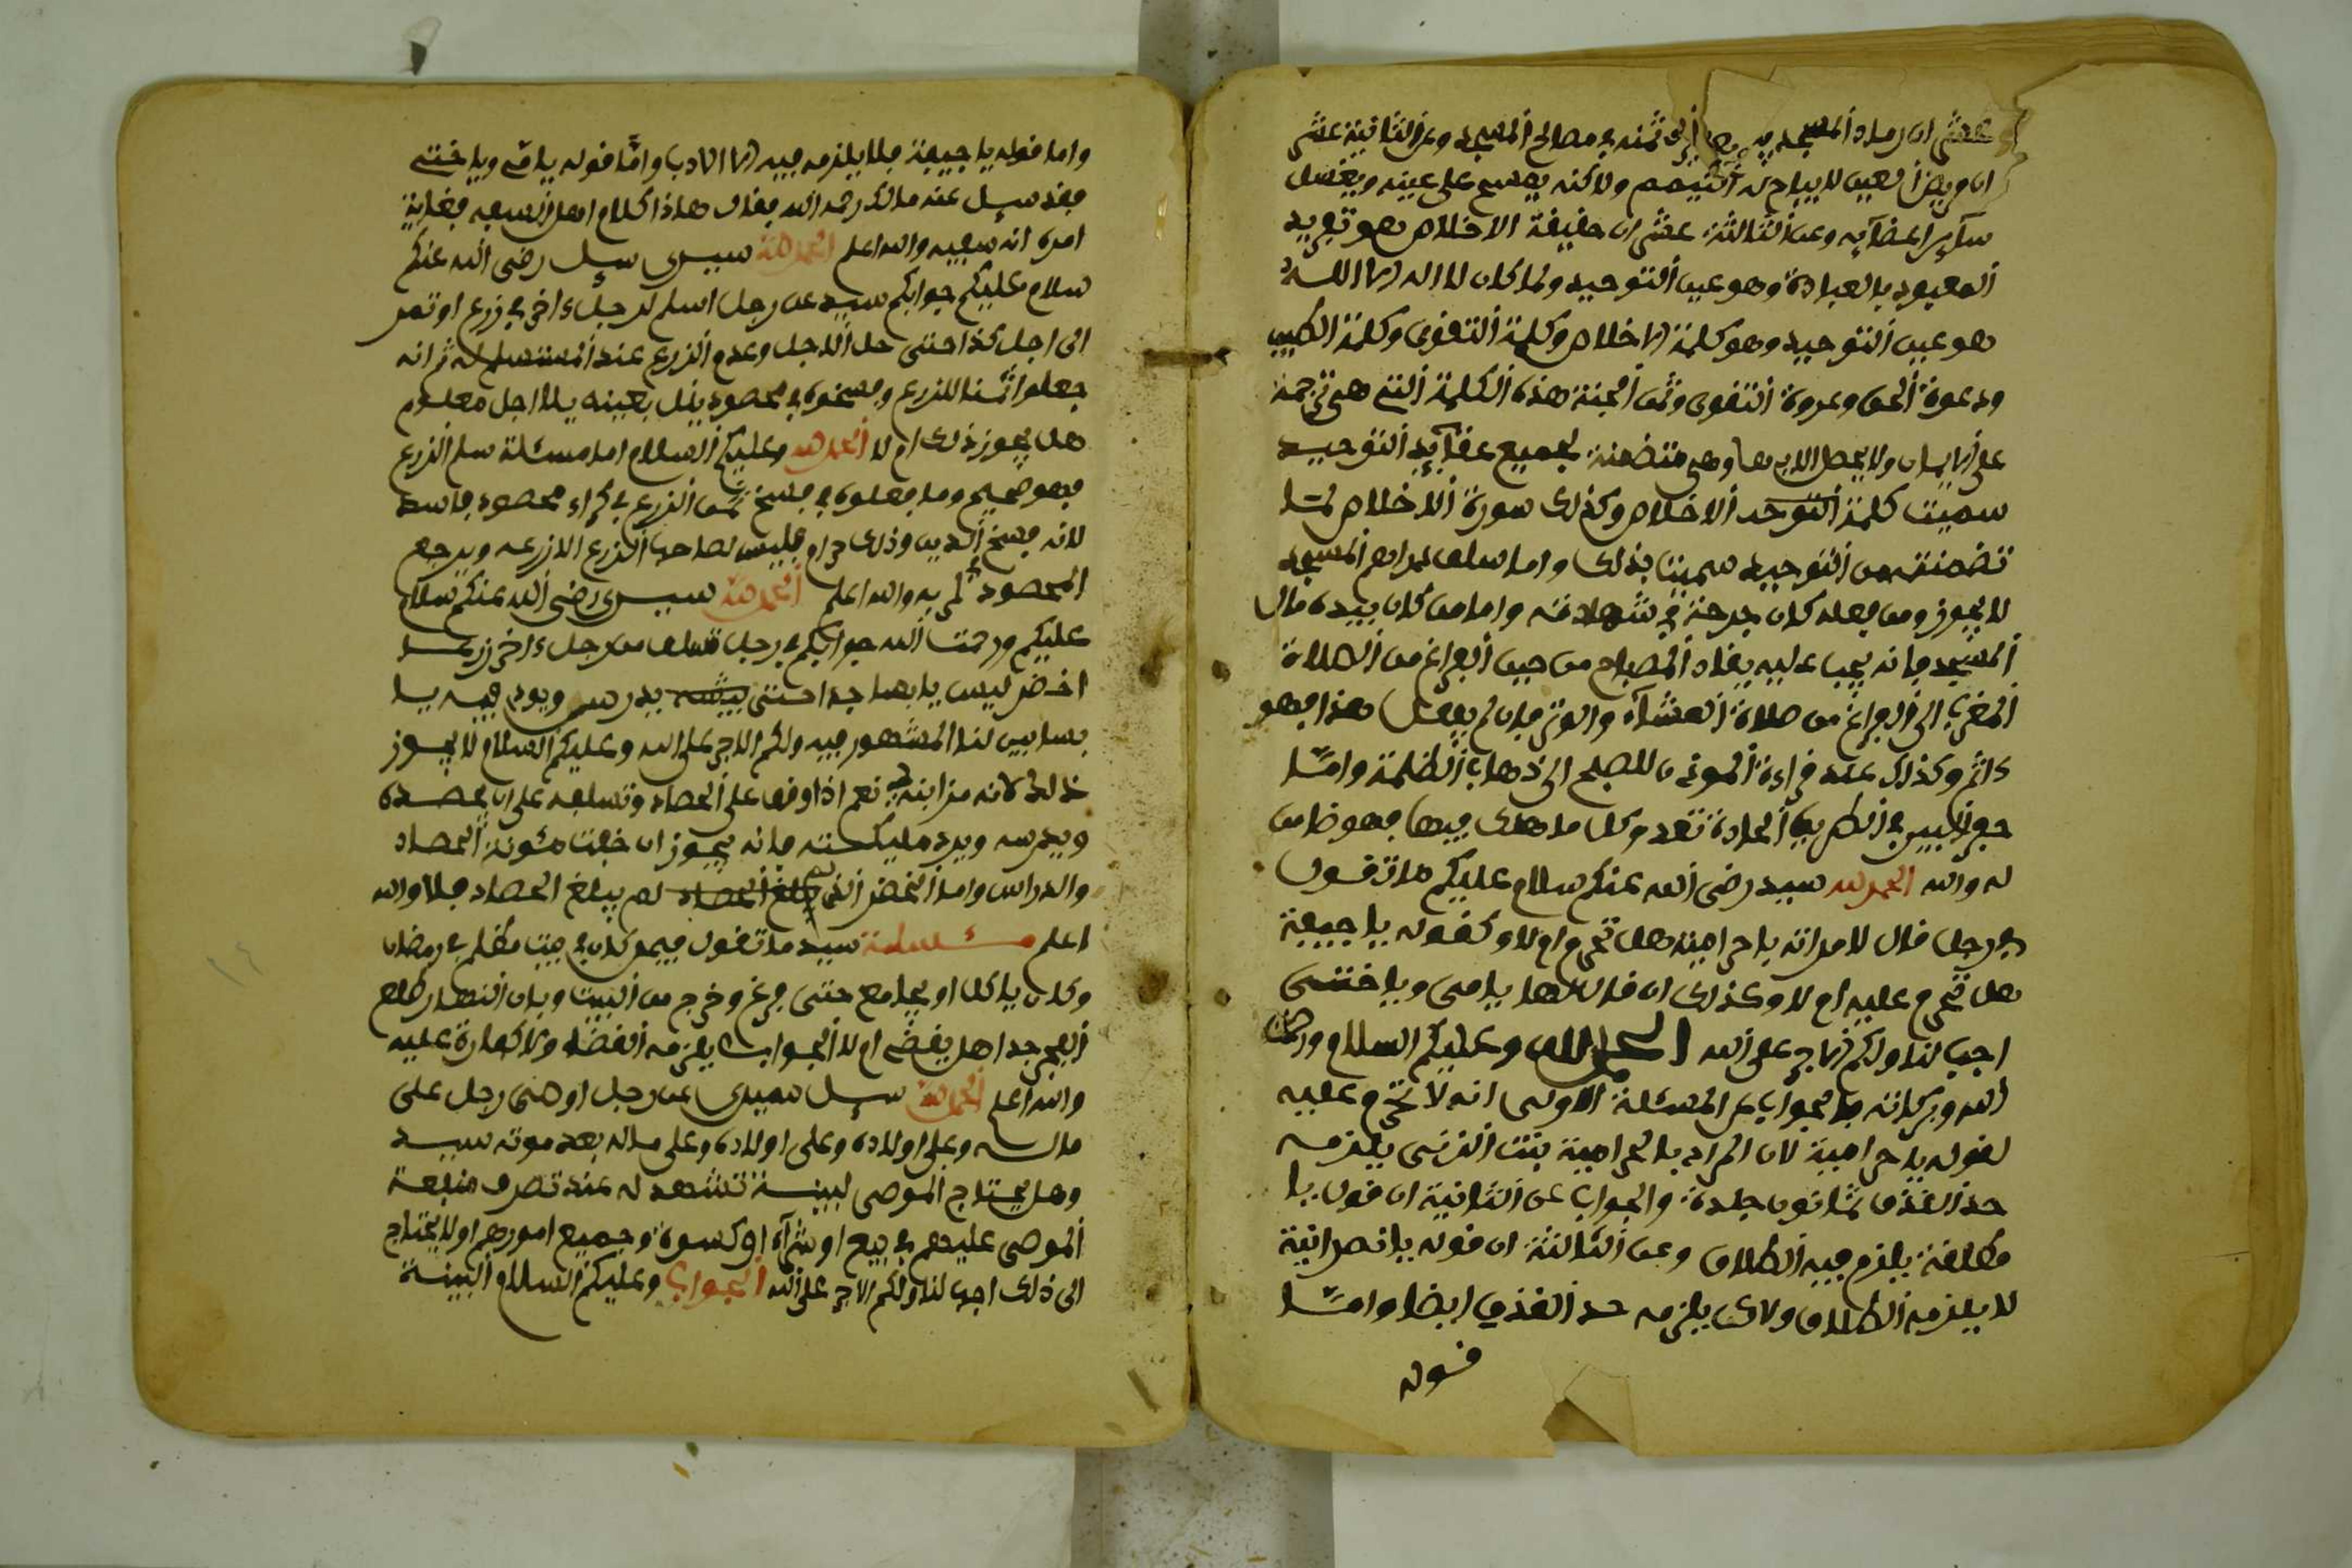 عشر ان رماد المسجد ثمنه في مصالح المسجد وعن الثانية عشر
ان مريض العين لا يباح له التيمم ولاكنه يمسح على عينه ويغسل
سآير اعضآيه وعن الثالثة عشر ان حقيقة الاخلاص هو تفريد
المعبود بالعبادة وهو عين التوحيد ولما كان لا اله الا الله
هو عين التوحيد وهو كلمة الاخلاص وكلمة التقوى وكلمة الطيب
ودعوة الحق وعروة التقوى وثمن الجنة هذه الكلمة التي هي ترجمة
على الايمان ولا يحصل الا بها وهي متضمنة لجميع عقآيد التوحيد
سميت كلمة التوحد الاخلاص وكذلك سورة الاخلاص لما
تضمنته من التوحيد سميت بذلك واما سلف دراهم المسجد
لا يجوز ومن فعله كان جرحة في شهادته واما من كان بيده مال
المسجد فانه يجب عليه يفاد المصباح من حين الفراغ من الصلاة
المغرب الى الفراغ من صلاة العشآء والوتر فان لم يفعل هذا فهو
ءاثم وكذلك عند قراءة الموذن للصبح الى ذهاب الظلمة واما
حفر البير في الطريق الجادة تعد وكل ما هلك فيها فهو ضامن
له والله الحمد لله سيد رضي الله عنكم سلام عليكم ما تقول
في رجل قال لامراته يا حرامية هل تحرم ام لا وكقوله يا جيفة
هل تحرم عليه ام لا وكذلك ان قال لها يا مى ويا ختى
اجب لنا ولكم الاجر على الله الحمد لله وعليكم السلام ورحمت
الله وبركاته فالجواب عن المسئلة الاولى انه لا تحرم عليه
لقوله يا حرامية لان المراد بالحرامية بنت الزنى يلزمه
حد القذف ثمانون جلدة والجواب عن الثانية ان قول يا
مطلقة يلزم فيه الطلاق وعن الثالثة ان قوله يا نصرانية
لا يلزمه الطلاق ولاكن يلزمه حد القذف ايضا واما
قوله
واما قوله يا جيفة فلا يلزمه فيه الا الادب وامّا قوله يا مّى ويا ختى
فقد سيل عنه مالك رحمه الله فقال هاذا كلام اهل السفه فغاية
امره انه سفيه والله اعلم الحمد لله سيدى سيل رضى الله عنكم
سلام عليكم جوابكم سيد عن رجل اسلم لرجل ءاخر في زرع او تمر
الى اجل كذا حتى حل الاجل وعدم الزرع عند المستسلم له ثم انه
جعلوا ثمنا للزرع وفسخوه في محصود بعينه يلا اجل معلوم
هل يجوز ذلك ام لا الحمد لله وعليكم السلام اما مسئلة سلم الزرع
فهو صحيح وما فعلوه في فسخ ثمن الزرع في كراء محصود فاسد
لانه فسخ الدين وذلك حرام فليس لصاحب الزرع الا زرعه ويرجع
المحصود لربه والله اعلم الحمد لله سيدى رضى الله عنكم سلام
عليكم ورحمت الله جوابكم في رجل تسلف من رجل ءاخر زرعا
اخضر ليس يابسا جدا حتى يدرس ويود فيه يا
بسا بين لنا المشهور فيه ولكم الاجر على الله وعليكم السلام لا يجوز
ذلك لانه مزابنة نعم اذا وقف على الحصاد وتسلفه على ان يحصده
ويدرسه ويرد مليكته فانه يجوز ان خفت مئونة الحصاد
والدراس واما الخضر الذى لم يبلغ الحصاد فلا والله
اعلم مسئلة سيد ما تقول فيمن كان في بيت مظلم في رمضان
وكان ياكل او يجامع حتى فرغ وخرج من البيت وبان النهار طلع
الفجر جدا هل يقضى ام لا الجواب يلزمه القضاء ولا كفارة عليه
والله اعلم الحمد لله سيل سيدى عن رجل اوصى رجل على
ماله وعلى اولاده وعلى اولاده وعلى ماله بعد موته سيد
وهل يحتاج الموصى لبينة تشهد له عند تصرف منفعة
الموصى عليهم في بيع او شرآء او كسوة وجميع امورهم او لا يحتاج
الى ذلك اجب لنا ولكم الاجر على الله الجواب وعليكم السلام البينة